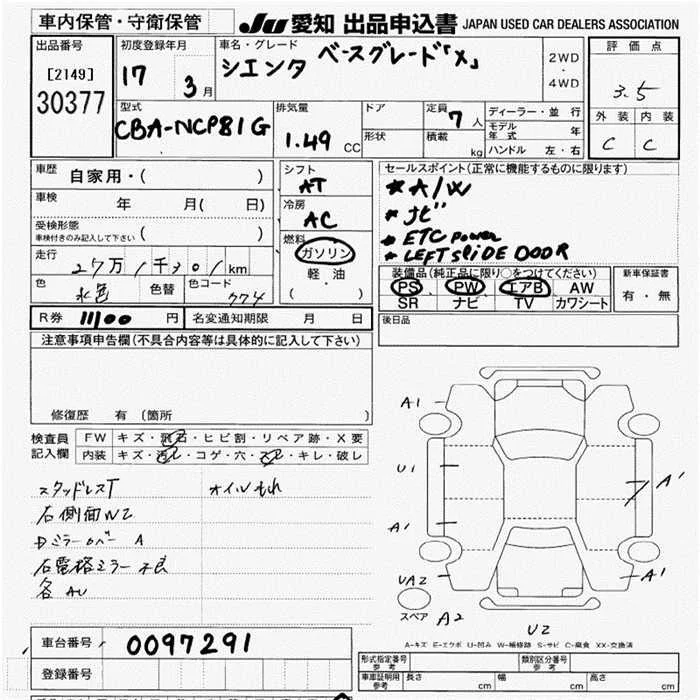 車内保管・守衛保管
JU 愛知 出品申込書 JAPAN USED CAR DEALERS ASSOCIATION
出品番号
[2149]
30377
初度登録年月
17 3月
車名・グレード
シエンタ ベースグレード「X」
2WD
・
4WD
評価点
3.5
外装 内装
C C
型式
CBA-NCP81G
排気量
1.49 CC
ドア
形状
定員 7人
積載 kg
ディーラー・並行
モデル年式 年
ハンドル 左・右
車歴 自家用・( )
車検 年 月( 日)
受検形態
車検付きのみ記入して下さい ( )
走行 27万1千301km
色 水色 色替 色コード 774
シフト
AT
冷房
AC
燃料
ガソリン
軽・油
( )
セールスポイント(正常に機能するものに限ります)
* A/W
* ナビ
* ETC power
* LEFT sliDE DOOR
装備品(純正品に限り○をつけてください)
PS PW エアB AW
SR ナビ TV カワシート
新車保証書
有・無
R券 11100 円 名変通知期限 月 日
後日品
注意事項申告欄(不具合内容等は具体的に記入して下さい)
修復歴 有(箇所 )
検査員記入欄
FW キズ・飛石・ヒビ割・リペア跡・X要
内装 キズ・汚レ・コゲ・穴・スレ・キレ・破レ
スタッドレスT オイルもれ
右側面W2
Dミラーカバー A
右電格ミラー不良
各AU
A1
U1
A1
UA2
A1
A1
スペア A2
U2
A-キズ E-エクボ U-凹み W-補修跡 S-サビ C-腐食 XX-交換済
車台番号 0097291
登録番号
形式指定番号 参考
類別区分番号 参考
車庫証明用 参考 長さ cm 幅 cm 高さ cm